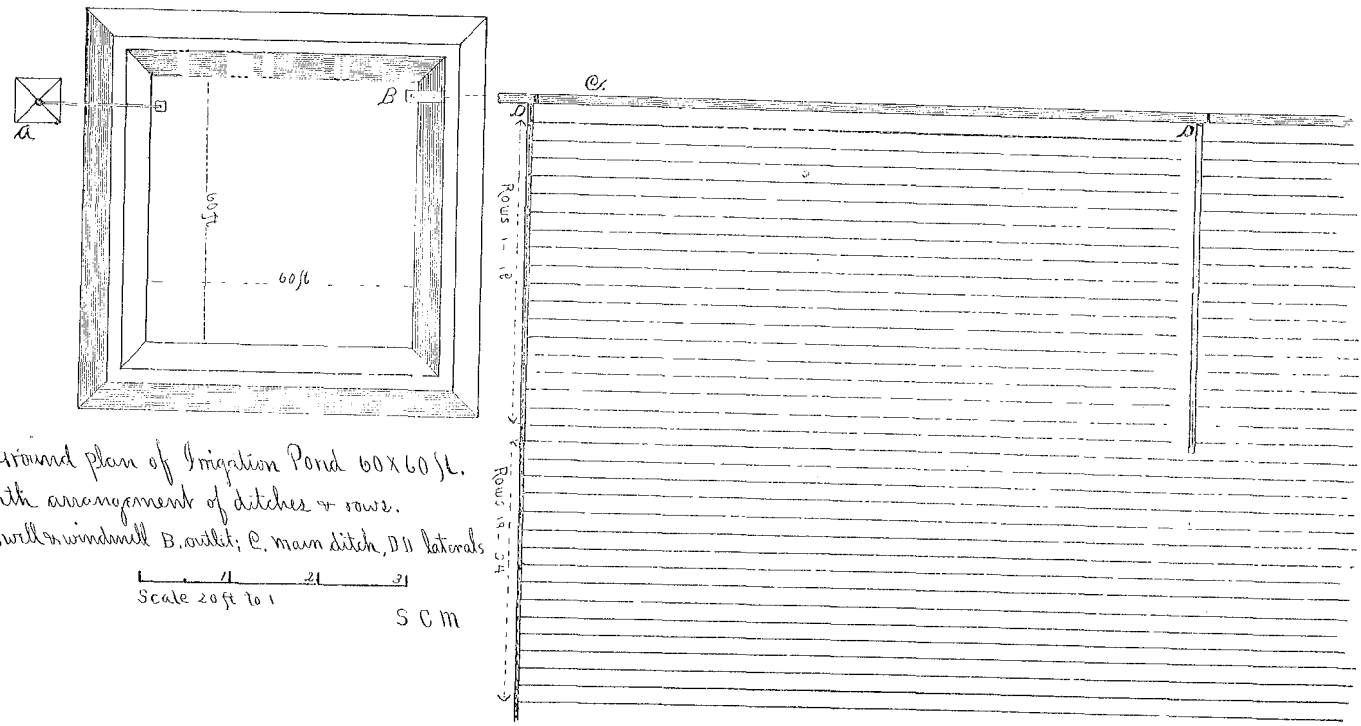 A
B
C.
D
D
60ft
60ft
Rows 1-18
Rows 19-34
ground plan of Irrigation Pond 60 x 60 ft.
with arrangement of ditches & rows.
well & windmill B. outlet; C. main ditch, DD laterals
1 2 3
Scale 20 ft to 1
S C M